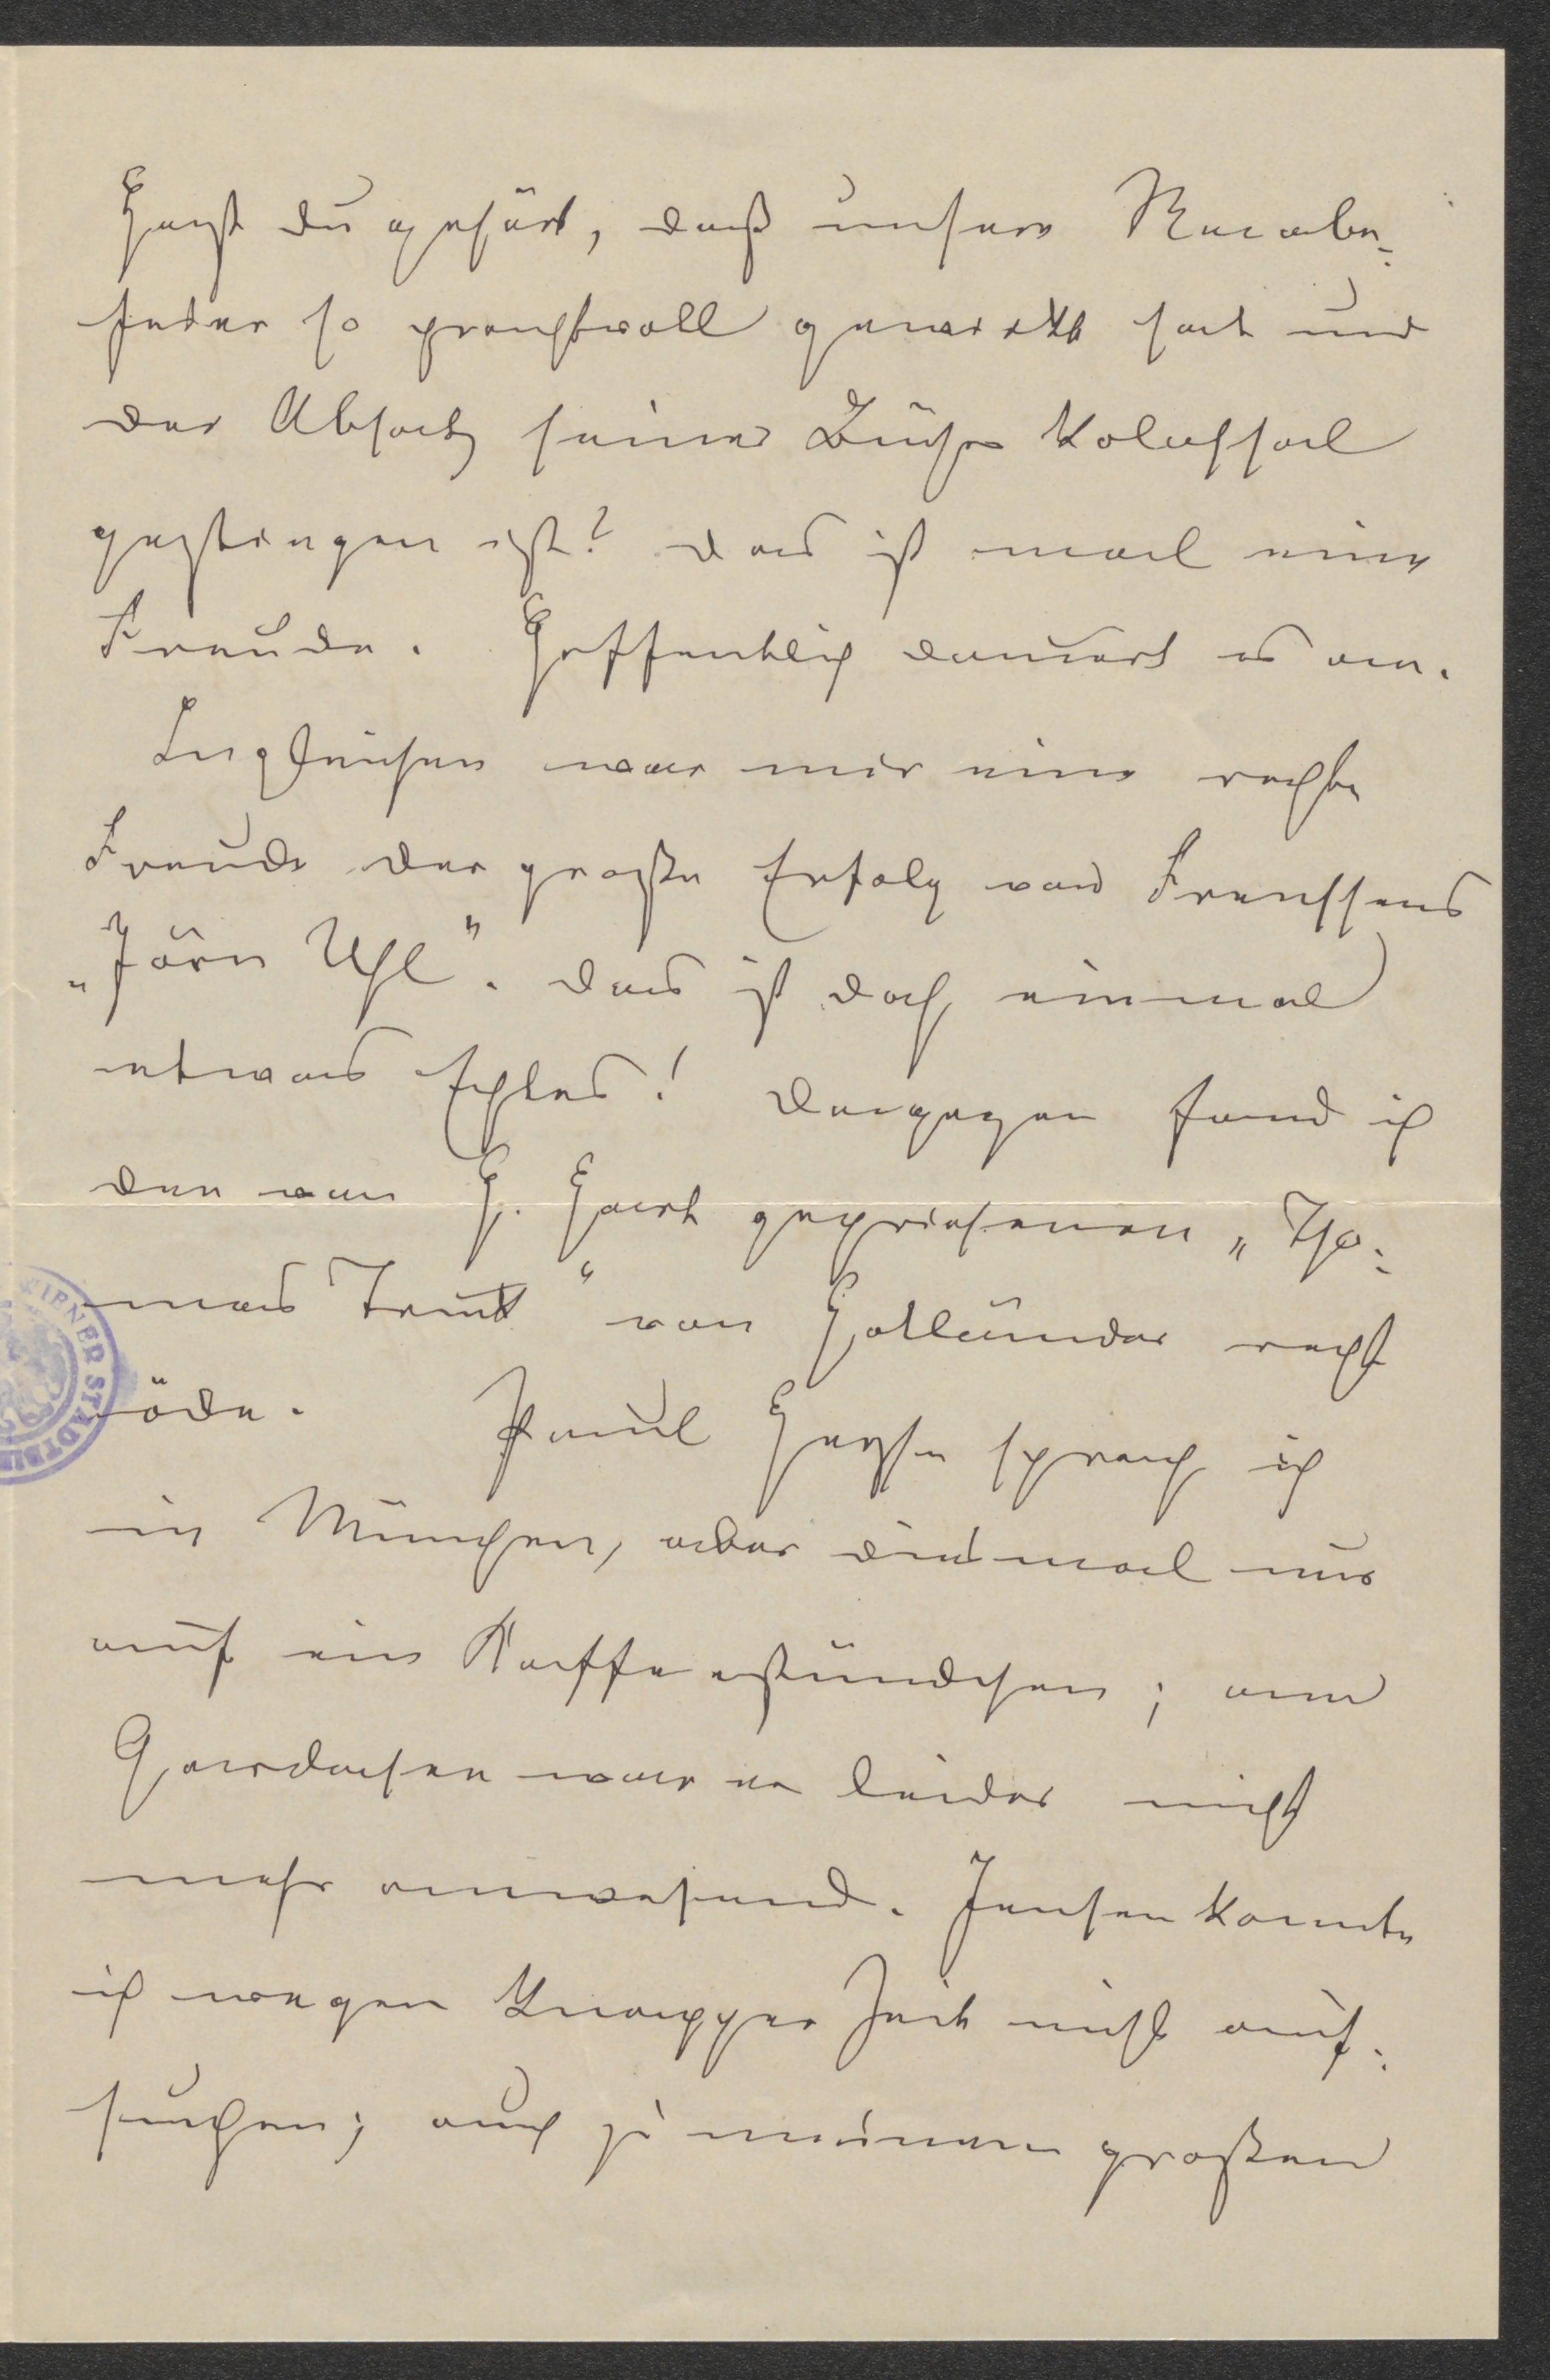 Hast du gehört, daß unsere Raabe-
feder so prachtvoll gewirkt hat und
der Absatz seiner Bücher kolossal
gestiegen ist? Das ist mal eine
Freude. Hoffentlich dauert es an.
Ingleichen war mir eine rechte
Freude der große Erfolg von Frenssens
„Jörn Uhl“. Das ist doch einmal
etwas Echtes! Dagegen fand ich
den von H. Hart gepriesenen „Tho-
mas Truck“ von Holländer recht
öde. Paul Heyse sprach ich
in München, aber diesmal nur
auf ein Kaffeestündchen; am
Gardasee war er leider nicht
mehr anwesend. Jensen konnte
ich wegen knapper Zeit nicht auf-
suchen; auch zu meinem großen
WIENER STADTBI